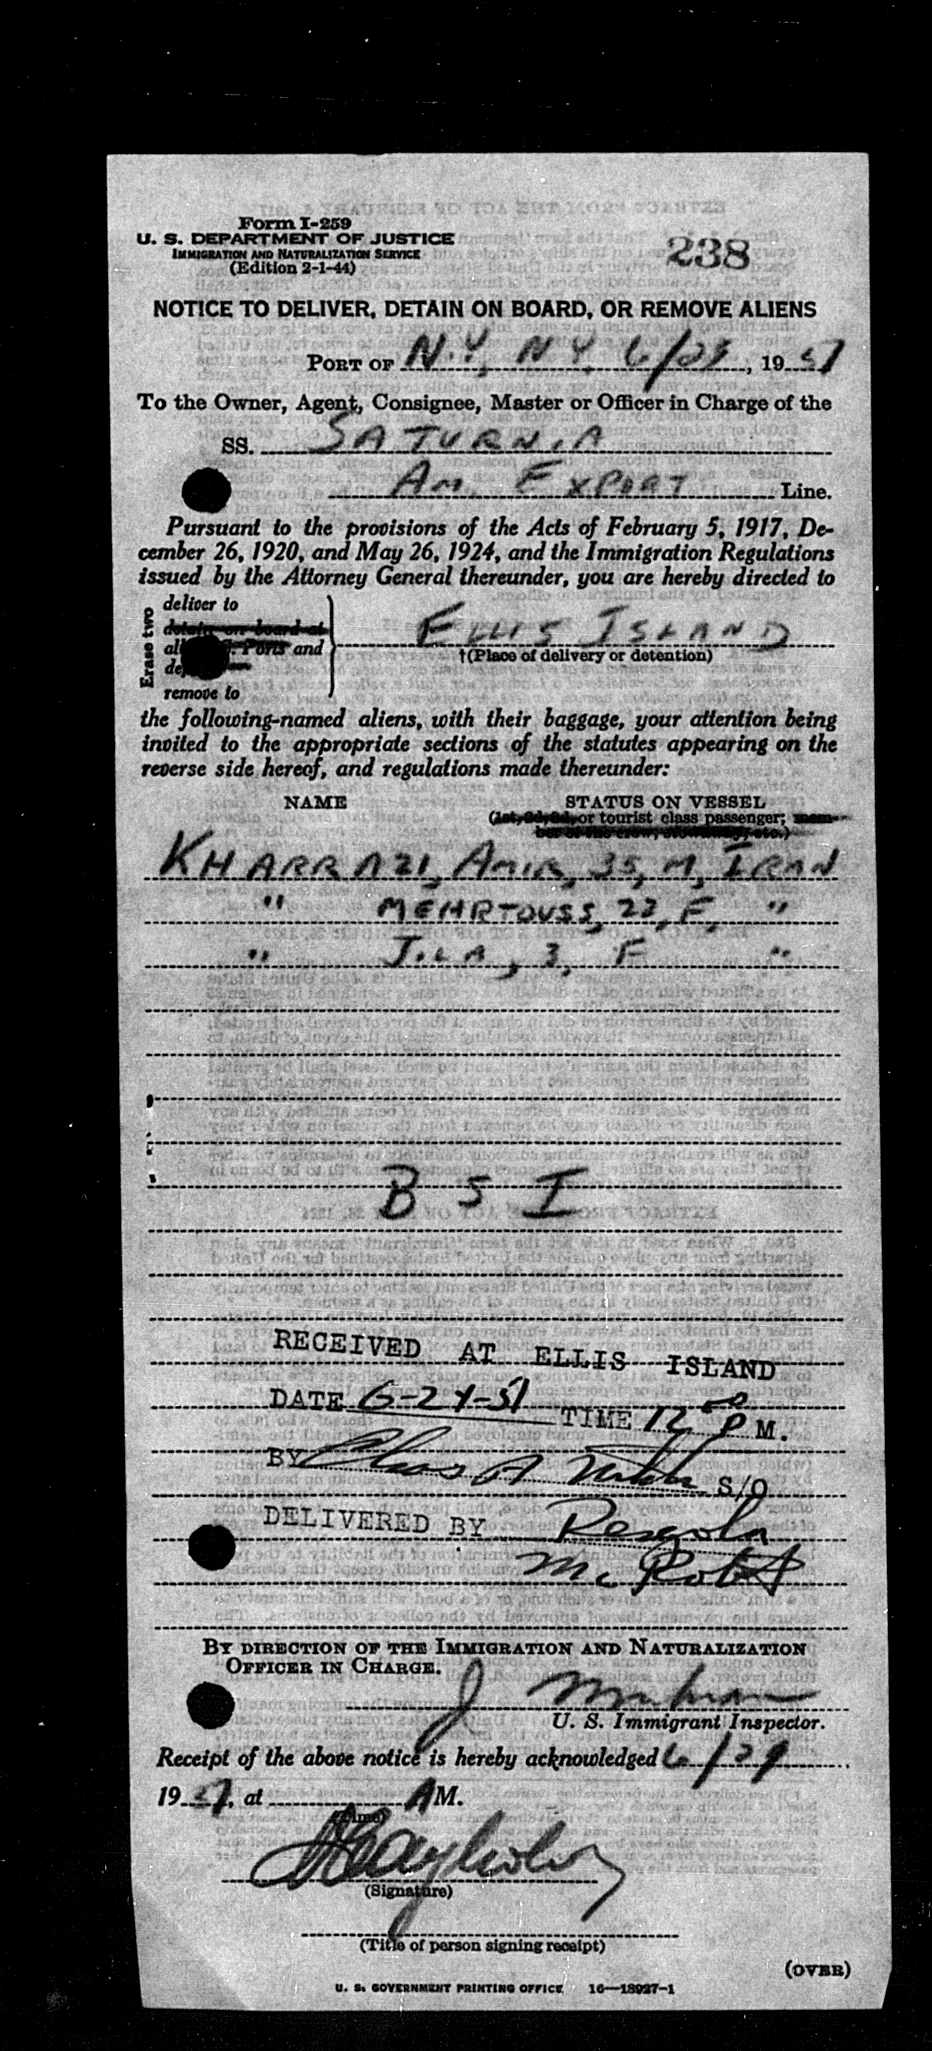 Form I-259
U. S. DEPARTMENT OF JUSTICE
IMMIGRATION AND NATURALIZATION SERVICE
(Edition 2-1-44)
238
NOTICE TO DELIVER, DETAIN ON BOARD, OR REMOVE ALIENS
PORT OF N.Y., N.Y., 6/29, 1951
To the Owner, Agent, Consignee, Master or Officer in Charge of the
SS. SATURNIA
Am. EXPORT Line.
Pursuant to the provisions of the Acts of February 5, 1917, De-
cember 26, 1920, and May 26, 1924, and the Immigration Regulations
issued by the Attorney General thereunder, you are hereby directed to
Erase two
deliver to
detain on board at
all Ports and
remove to
ELLIS ISLAND
†(Place of delivery or detention)
the following-named aliens, with their baggage, your attention being
invited to the appropriate sections of the statutes appearing on the
reverse side hereof, and regulations made thereunder:
NAME STATUS ON VESSEL
(1st, 2d, 3d, or tourist class passenger; mem-
ber of the crew, stowaway, etc.)
KHARRAZI, AMIR, 35, M, IRAN
" MEHRTOUSS, 22, F, "
" JILA, 3, F "
B S I
RECEIVED AT ELLIS ISLAND
DATE 6-29-51 TIME 12 P M.
BY Chas A S/O
DELIVERED BY
By DIRECTION OF THE IMMIGRATION AND NATURALIZATION
OFFICER IN CHARGE.
J
U. S. Immigrant Inspector.
Receipt of the above notice is hereby acknowledged 6/29
1951, at AM.
(Time)
(Signature)
(Title of person signing receipt)
(OVER)
U. S. GOVERNMENT PRINTING OFFICE 16—18927-1